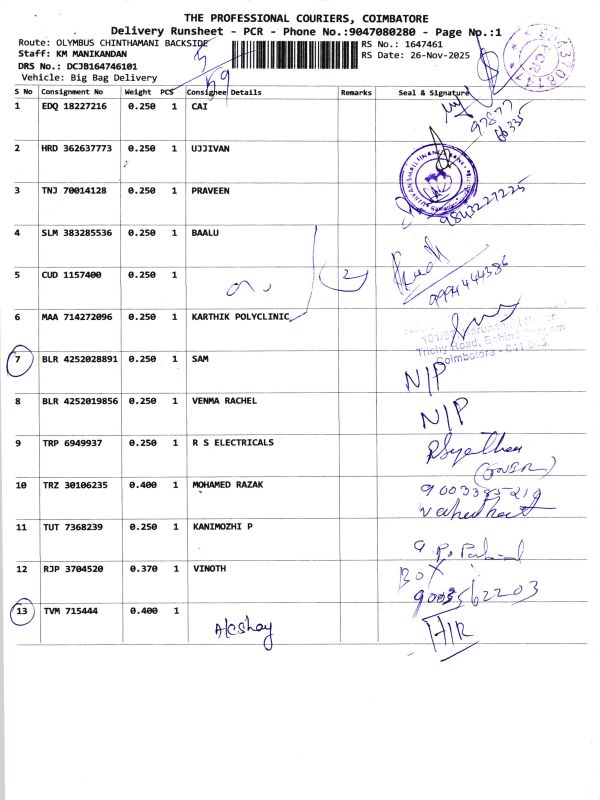 THE PROFESSIONAL COURIERS, COIMBATORE
Delivery Runsheet - PCR - Phone No.:9047080280 - Page No.:1
Route: OLYMBUS CHINTHAMANI BACKSIDE RS No.: 1647461
Staff: KM MANIKANDAN RS Date: 26-Nov-2025
DRS No.: DCJB164746101
Vehicle: Big Bag Delivery
S No Consignment No Weight PCS Consignee Details Remarks Seal & Signature
1 EDQ 18227216 0.250 1 CAI
2 HRD 362637773 0.250 1 UJJIVAN
3 TNJ 70014128 0.250 1 PRAVEEN
9843227225
4 SLM 383285536 0.250 1 BAALU
5 CUD 1157400 0.250 1 2
9994444386
6 MAA 714272096 0.250 1 KARTHIK POLYCLINIC
Coimbatore
7 BLR 4252028891 0.250 1 SAM N/P
8 BLR 4252019856 0.250 1 VENMA RACHEL N/P
9 TRP 6949937 0.250 1 R S ELECTRICALS
10 TRZ 30106235 0.400 1 MOHAMED RAZAK
11 TUT 7368239 0.250 1 KANIMOZHI P
12 RJP 3704520 0.370 1 VINOTH BOX
9003562203
13 TVM 715444 0.400 1 Akshay